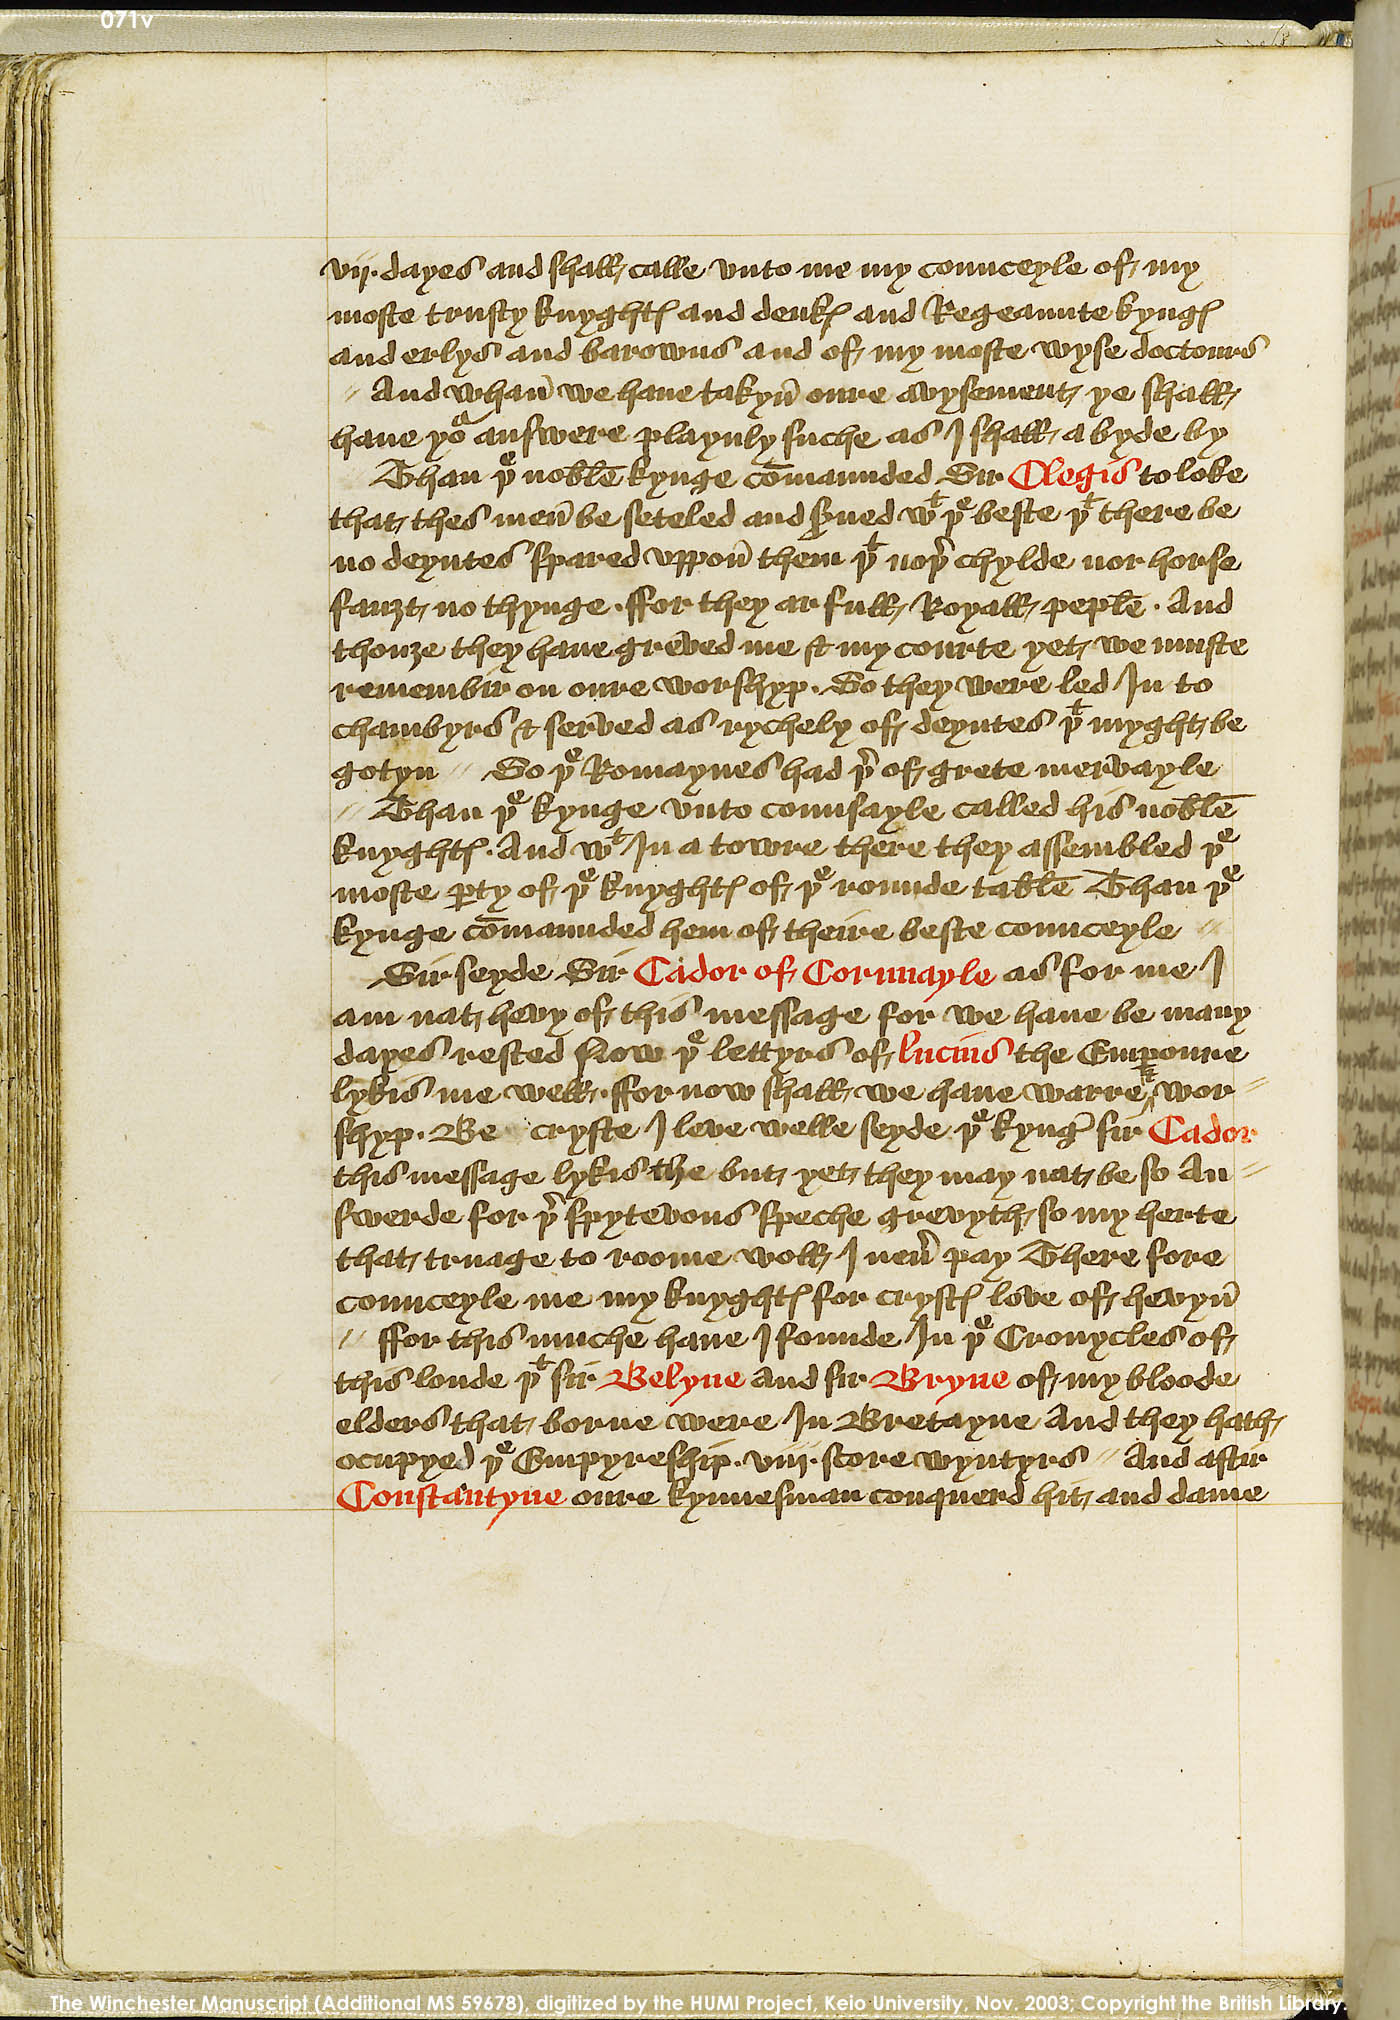 071v
vij. dayes and shall calle vnto me my counceyle of my
moste trusty knyghtꝭ and deukꝭ and Regeaunte kyngꝭ
and erlys and barowns and of my moste wyse doctours
〃 And whan̄ we haue takyn̄ oure avysement ye shall
haue yoᵘ answere playnly suche as I shall abyde by
Than þᵉ noble kynge cōmaunded Sir Clegis to loke
that thes men̄ be seteled and s̾ued wᵗ þᵉ beste þᵗ there be
no deyntes spared vppon̄ them þᵗ noþ̾ chylde nor horse
fauzt no thynge . ffor they ar full Royall peple . And
thouze they haue greved me & my courte yet we muste
remembir on oure worshyp . So they were led In to
chambyrs & served as rychely of deyntes þᵗ myght be
gotyn 〃 So þᵉ Romaynes had þ̾ of grete mervayle
〃 Than þᵉ kynge vnto counsayle called his noble
knyghtꝭ . And wᵗ In a towre there they assembled þᵉ
moste ꝑty of þᵉ knyghtꝭ of þᵉ rounde table Than þᵉ
kynge cōmaunded hem of theire beste counceyle 〃
Sir seyde Sir Cador of Cornuayle as for me I
am nat hevy of this message for we haue be many
dayes rested now þᵉ lettyrs of lucius the Empoure
lykis me well . ffor now shall we haue warre & wor〃
shyp . Be cryste I leve welle seyde þᵉ kyng̾ sir Cador
this message lykis the but yet they may nat be so An〃
swerde for þ̾ spytevous speche grevyth so my herte
that truage to roome woll I neu̾ pay There fore
counceyle me my knyghtꝭ for crystꝭ love of hevyn̄
〃 ffor this muche haue I founde In þᵉ Cronycles of
this londe þᵗ sir Belyne and sir Bryne of my bloode
elders that borne were In Bretayne And they hath
ocupyed þᵉ Empyreship . viij. score wyntyrs 〃 And aftir
Constantyne oure kynnesman conquerd hit and dame
The Winchester Manuscript (Additional MS 59678), digitized by the HUMI Project, Keio University, Nov. 2003; Copyright the British Library.